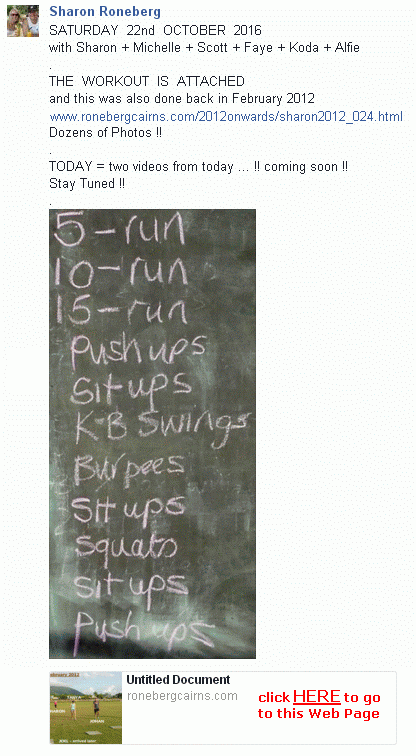 Sharon Roneberg
SATURDAY 22nd OCTOBER 2016
with Sharon + Michelle + Scott + Faye + Koda + Alfie
.
THE WORKOUT IS ATTACHED
and this was also done back in February 2012
www.ronebergcairns.com/2012onwards/sharon2012_024.html
Dozens of Photos !!
.
TODAY = two videos from today ... !! coming soon !!
Stay Tuned !!
.
5-run
10-run
15-run
Pushups
Situps
K-B Swings
Burpees
Situps
Squats
Situps
Pushups
Untitled Document
ronebergcairns.com
click HERE to go
to this Web Page